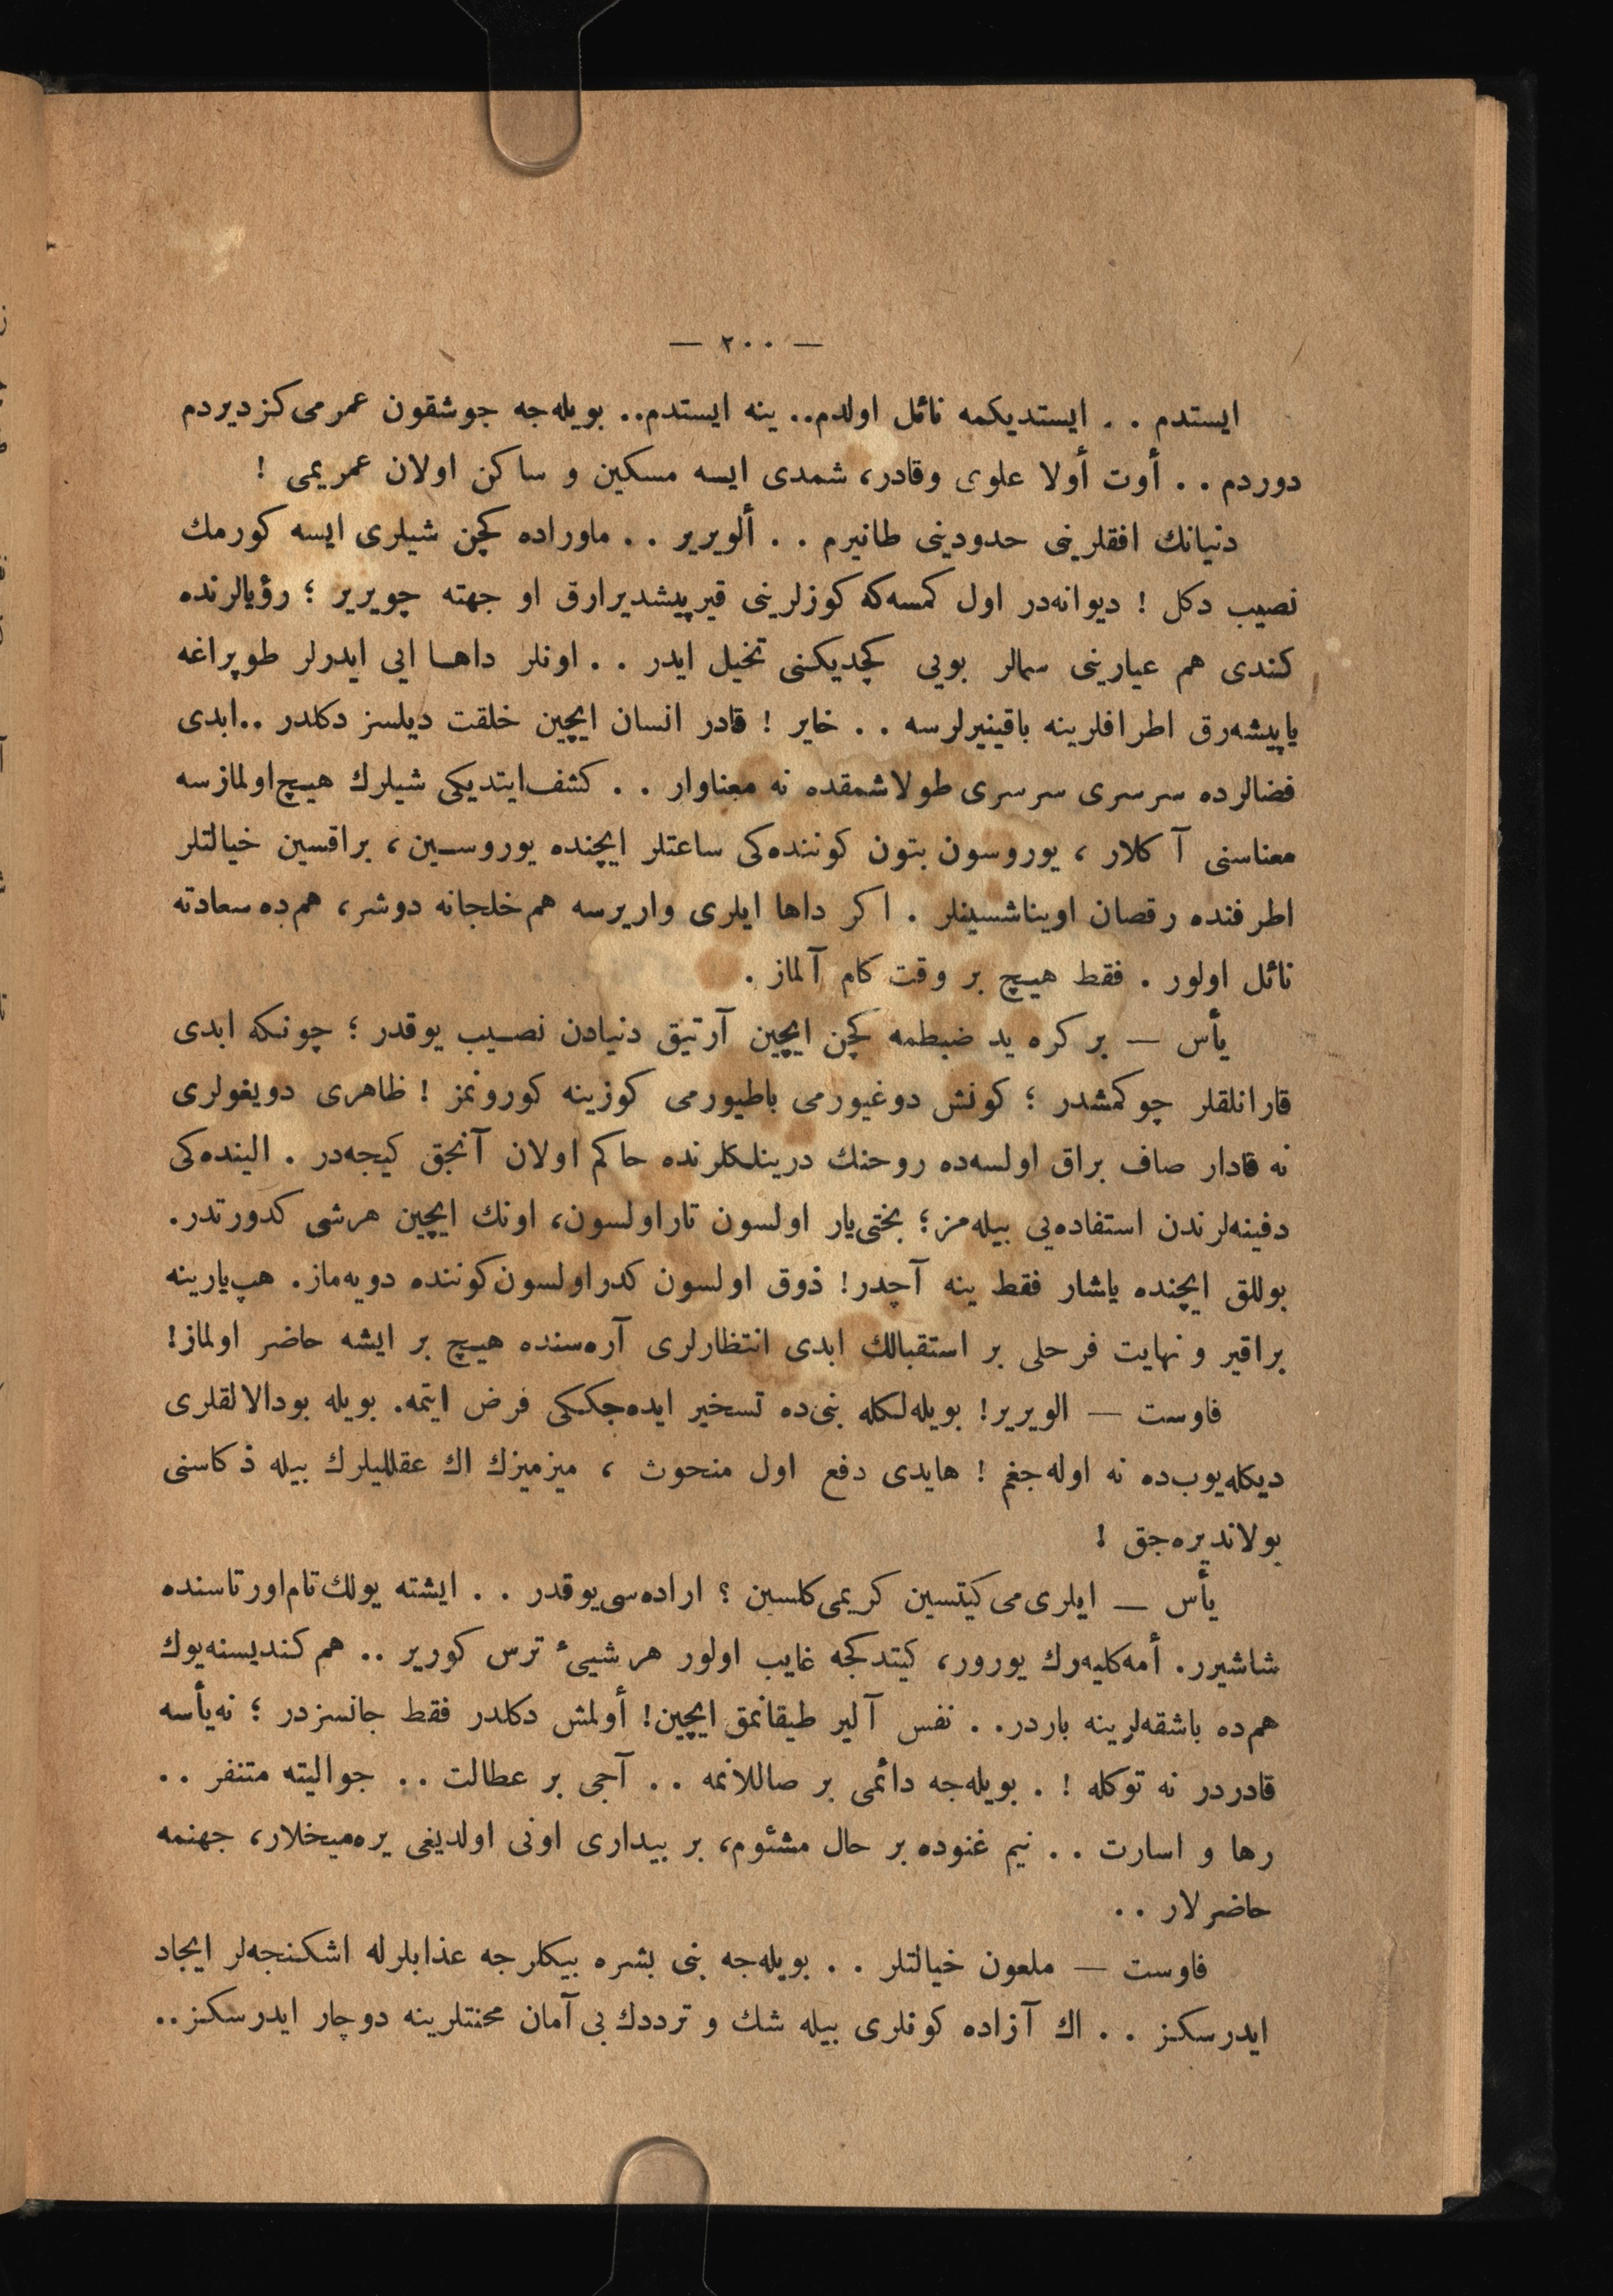 — ٢٠٠ —
ايستدم . . ايستديكمه نائل اولدم.. ينه ايستدم.. بويله‌جه جوشقون عمرمى كزديردم
دوردم . . أوت أولا علوى وقادر، شمدى ايسه مسكين و ساكن اولان عمريمى !
دنيانك افقلرينى حدودينى طانيرم . . ألويرير . . ماوراده كچن شيلرى ايسه كورمك
نصيب دكل ! ديوانه‌در اول كمسه‌كه كوزلرينى قيرپيشديرارق او جهته چويرير ؛ رؤيالرنده
كندى هم عيارينى سمالر بويى كچديكنى تخيل ايدر . . اونلر داها ايى ايدرلر طوپراغه
ياپيشه‌رق اطرافلرينه باقينيرلرسه . . خاير ! قادر انسان ايچين خلقت ديلسز دكلدر ..ابدى
فضالرده سرسرى سرسرى طولاشمقده نه معناوار . . كشف‌ايتديكى شيلرك هيچ‌اولمازسه
معناسنى آكلار ، يوروسون بتون كوننده‌كى ساعتلر ايچنده يوروسين، براقسين خيالتلر
اطرفنده رقصان اويناشسينلر . اكر داها ايلرى واريرسه هم خلجانه دوشر، هم‌ده سعادته
نائل اولور . فقط هيچ بر وقت كام آلماز .
يأس — بر كره يد ضبطمه كچن ايچين آرتيق دنيادن نصيب يوقدر ؛ چونكه ابدى
قارانلقلر چوكمشدر ؛ كونش دوغيورمى باطيورمى كوزينه كورونمز ! ظاهرى دويغولرى
نه قادار صاف براق اولسه‌ده روحنك درينلكلرنده حاكم اولان آنجق كيجه‌در . الينده‌كى
دفينه‌لرندن استفاده‌يى بيله‌مز ؛ بختى‌يار اولسون تاراولسون، اونك ايچين هرشى كدورتدر.
بوللق ايچنده ياشار فقط ينه آچدر! ذوق اولسون كدراولسون‌كوننده دويه‌ماز. هپ‌يارينه
براقير و نهايت فرحلى بر استقبالك ابدى انتظارلرى آره‌سنده هيچ بر ايشه حاضر اولماز!
فاوست — الويرير! بويله‌لكله بنى‌ده تسخير ايده‌جككى فرض ايتمه. بويله بودالالقلرى
ديكله‌يوب‌ده نه اوله‌جغم ! هايدى دفع اول منحوث ، ميزميزك اك عقلليلرك بيله ذكاسنى
بولانديره‌جق !
يأس — ايلرى‌مى‌كيتسين كريمى‌كلسين ؟ اراده‌سى‌يوقدر . . ايشته يولك‌تام‌اورتاسنده
شاشيرر. أمه‌كليه‌رك يورور، كيتدكجه غايب اولور هر شيئ ترس كورير .. هم كنديسنه‌يوك
هم‌ده باشقه‌لرينه باردر. . نفس آلير طيقانمق ايچين! أولمش دكلدر فقط جانسزدر ؛ نه‌يأسه
قادردر نه توكله ! . بويله‌جه دائمى بر صاللانمه . . آجى بر عطالت .. جواليته متنفر ..
رها و اسارت . . نيم غنوده بر حال مشئوم، بر بيدارى اونى اولديغى يره‌ميخلار، جهنمه
حاضرلار ..
فاوست — ملعون خيالتلر . . بويله‌جه بنى بشره بيكلرجه عذابلرله اشكنجه‌لر ايجاد
ايدرسكز . . اك آزاده كونلرى بيله شك و ترددك بى‌آمان محنتلرينه دوچار ايدرسكز..